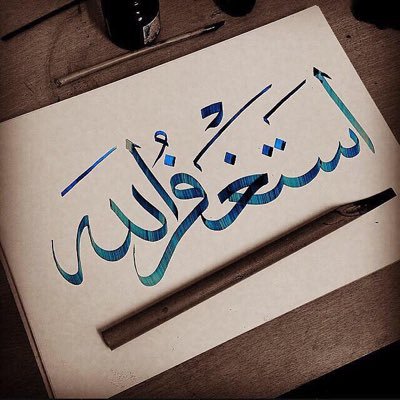 استغفر الله